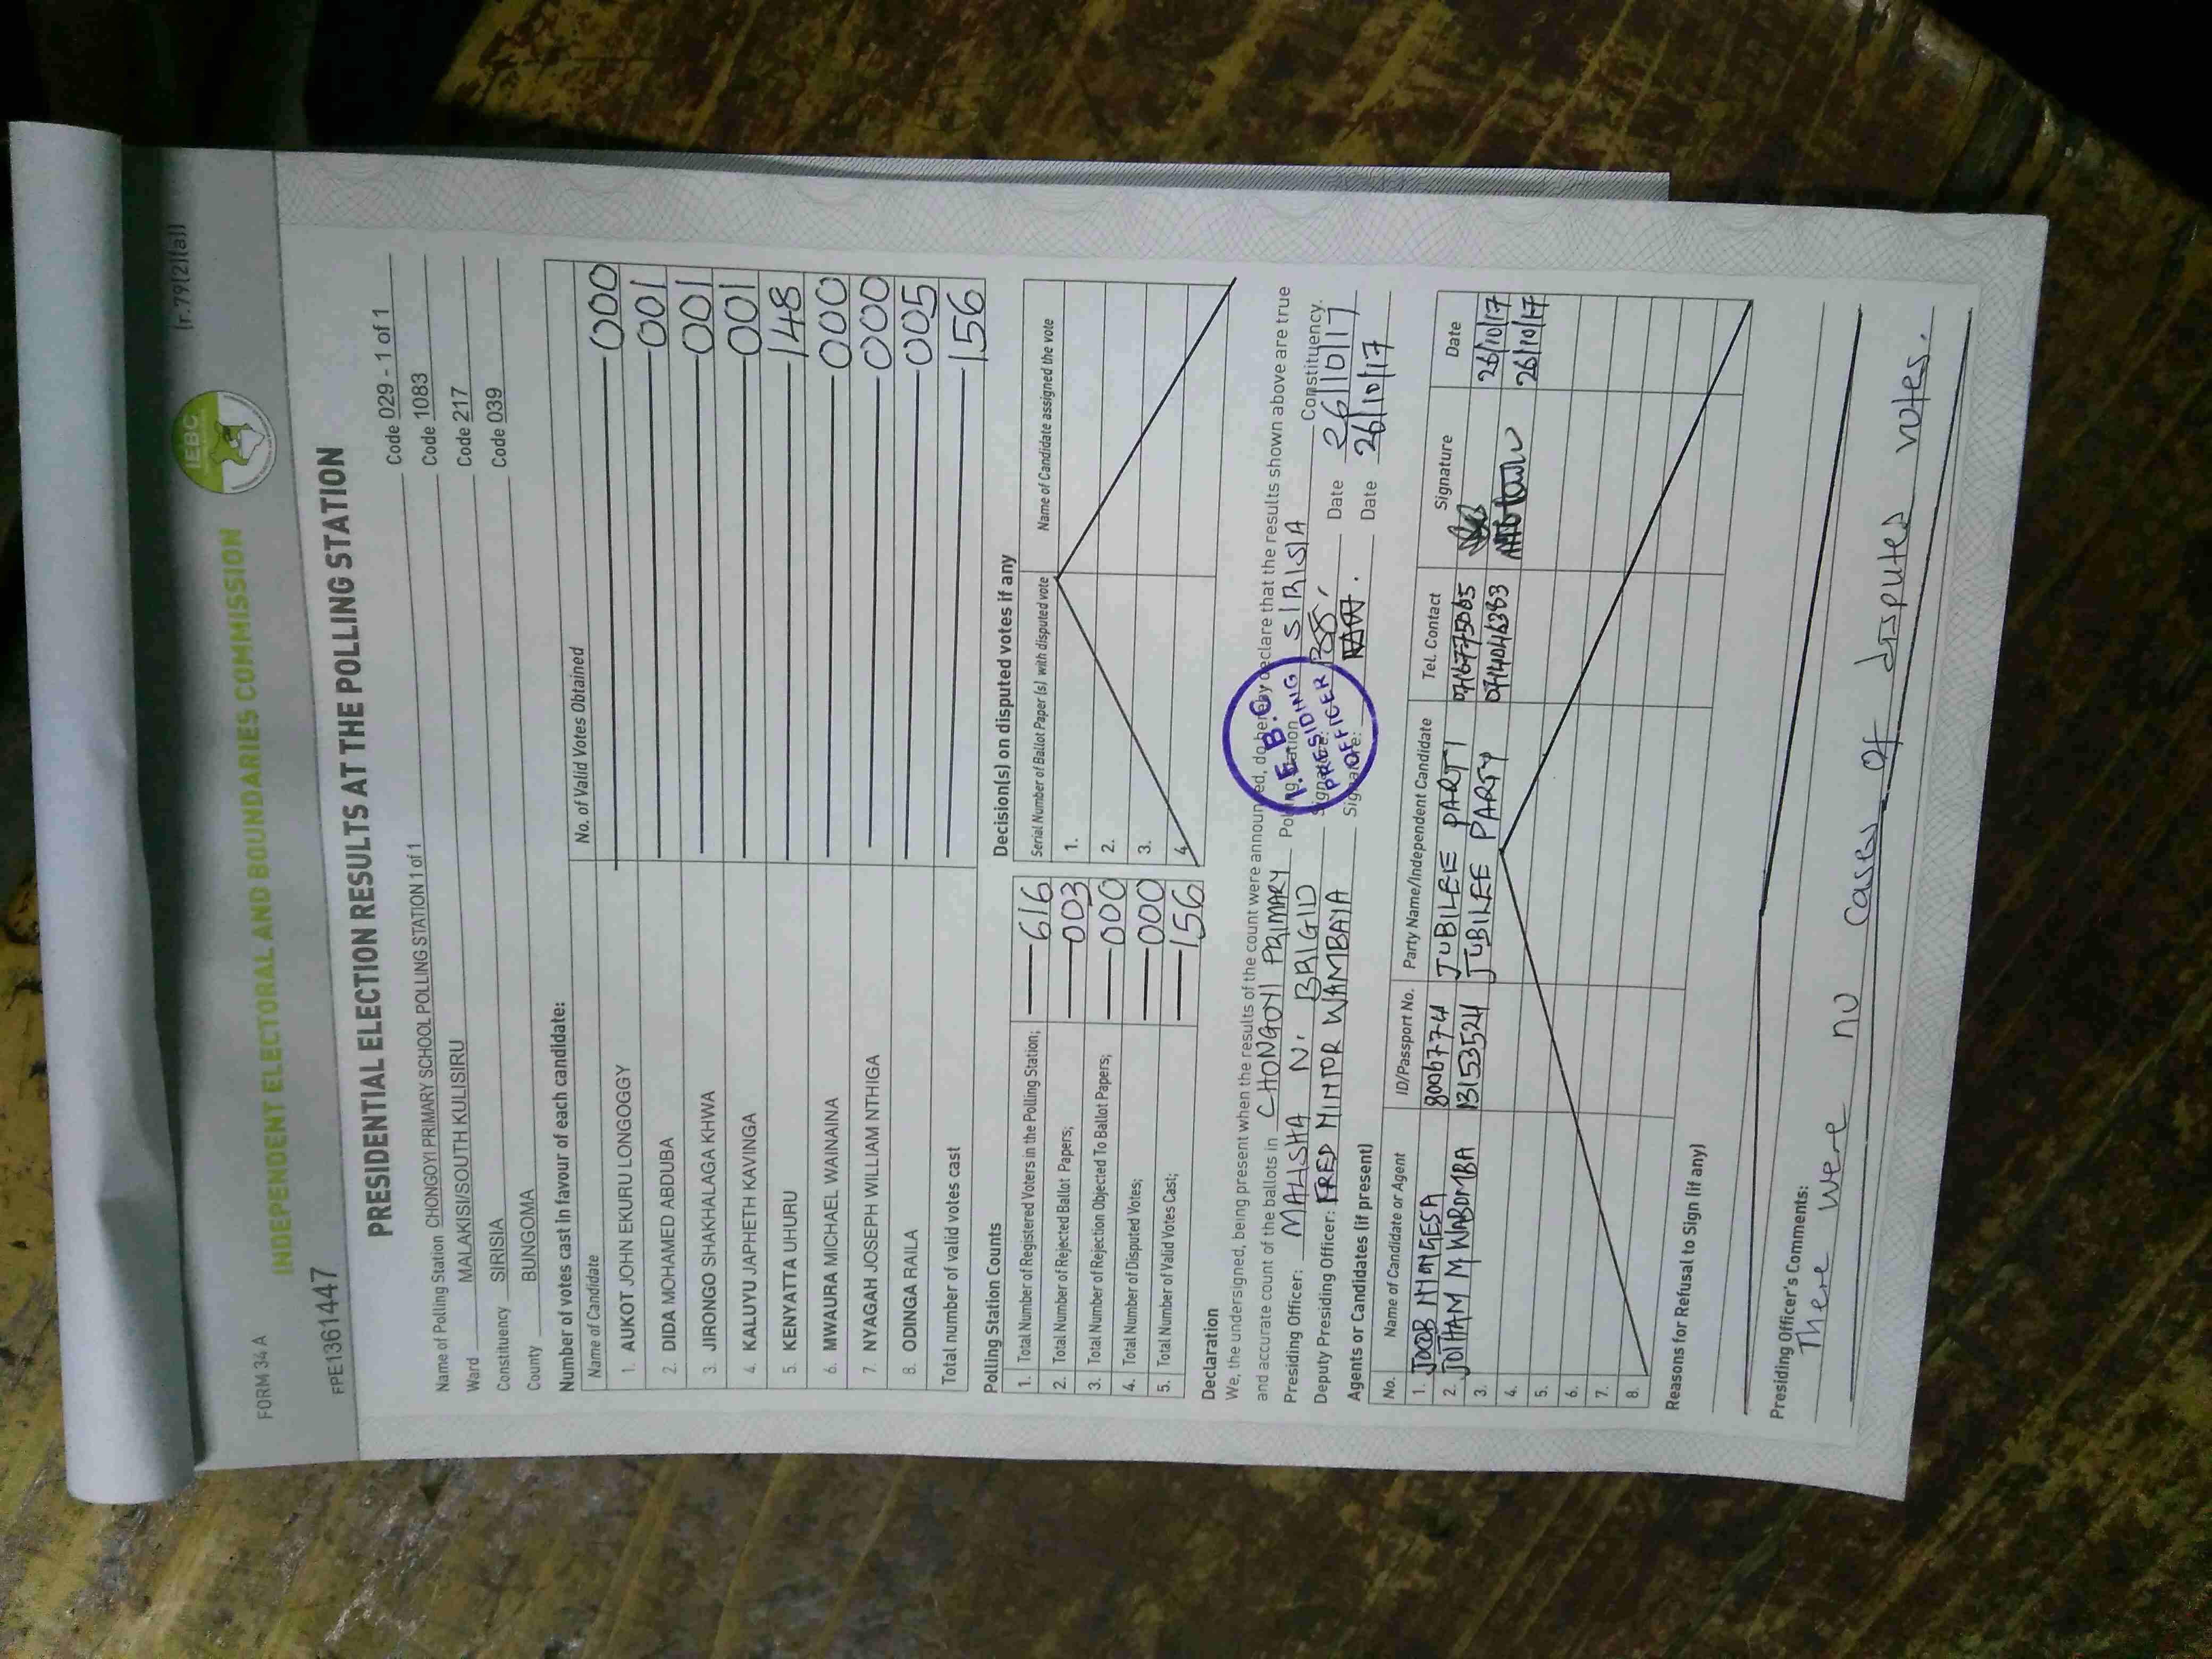 FORM 34 A
(r.79(2)(a))
IEBC
INDEPENDENT ELECTORAL AND BOUNDARIES COMMISSION
FPE1361447
PRESIDENTIAL ELECTION RESULTS AT THE POLLING STATION
Name of Polling Station CHONGOYI PRIMARY SCHOOL POLLING STATION 1 of 1 Code 029 - 1 of 1
Ward MALAKISI/SOUTH KULISIRU Code 1083
Constituency SIRISIA Code 217
County BUNGOMA Code 039
Number of votes cast in favour of each candidate:
Name of Candidate No. of Valid Votes Obtained
1. AUKOT JOHN EKURU LONGOGGY 000
2. DIDA MOHAMED ABDUBA 001
3. JIRONGO SHAKHALAGA KHWA 001
4. KALUYU JAPHETH KAVINGA 001
5. KENYATTA UHURU 148
6. MWAURA MICHAEL WAINAINA 000
7. NYAGAH JOSEPH WILLIAM NTHIGA 000
8. ODINGA RAILA 005
Total number of valid votes cast 156
Polling Station Counts
1. Total Number of Registered Voters in the Polling Station; 616
2. Total Number of Rejected Ballot Papers; 003
3. Total Number of Rejection Objected To Ballot Papers; 000
4. Total Number of Disputed Votes; 000
5. Total Number of Valid Votes Cast; 156
Decision(s) on disputed votes if any
Serial Number of Ballot Paper (s) with disputed vote Name of Candidate assigned the vote
1.
2.
3.
4.
Declaration
We, the undersigned, being present when the results of the count were announced, do hereby declare that the results shown above are true
and accurate count of the ballots in CHONGOYI PRIMARY Polling Station SIRISIA Constituency.
Presiding Officer: MALISHA N. BRIGID Signature: Date 26/10/17
Deputy Presiding Officer: FRED MINTOR WAMBAYA Signature: Date 26/10/17
I.E.B.C
PRESIDING
OFFICER
Agents or Candidates (if present)
No. Name of Candidate or Agent ID/Passport No. Party Name/Independent Candidate Tel. Contact Signature Date
1. 8006774 JUBILEE PARTY 26/10/17
2. JOTHAM M WABOMBA 13153524 JUBILEE PARTY 26/10/17
3.
4.
5.
6.
7.
8.
Reasons for Refusal to Sign (if any)
Presiding Officer's Comments:
There were no cases of disputed votes.